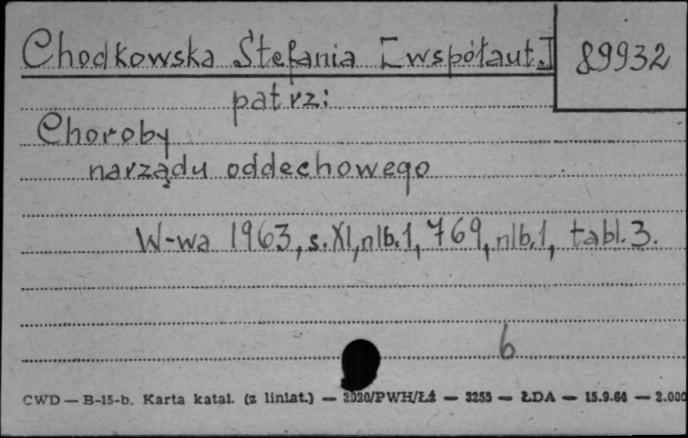 Chodkowska Stefania [współaut.]
89932
patrz:
Choroby
narządu oddechowego
W-wa 1963, s. XI, nlb. 1, 769, nlb. 1, tabl. 3.
6
CWD — B-15-b. Karta katal. (z liniat.) — 3020/PWH/Łź — 3255 — ŁDA — 15.9.64 — 2.000